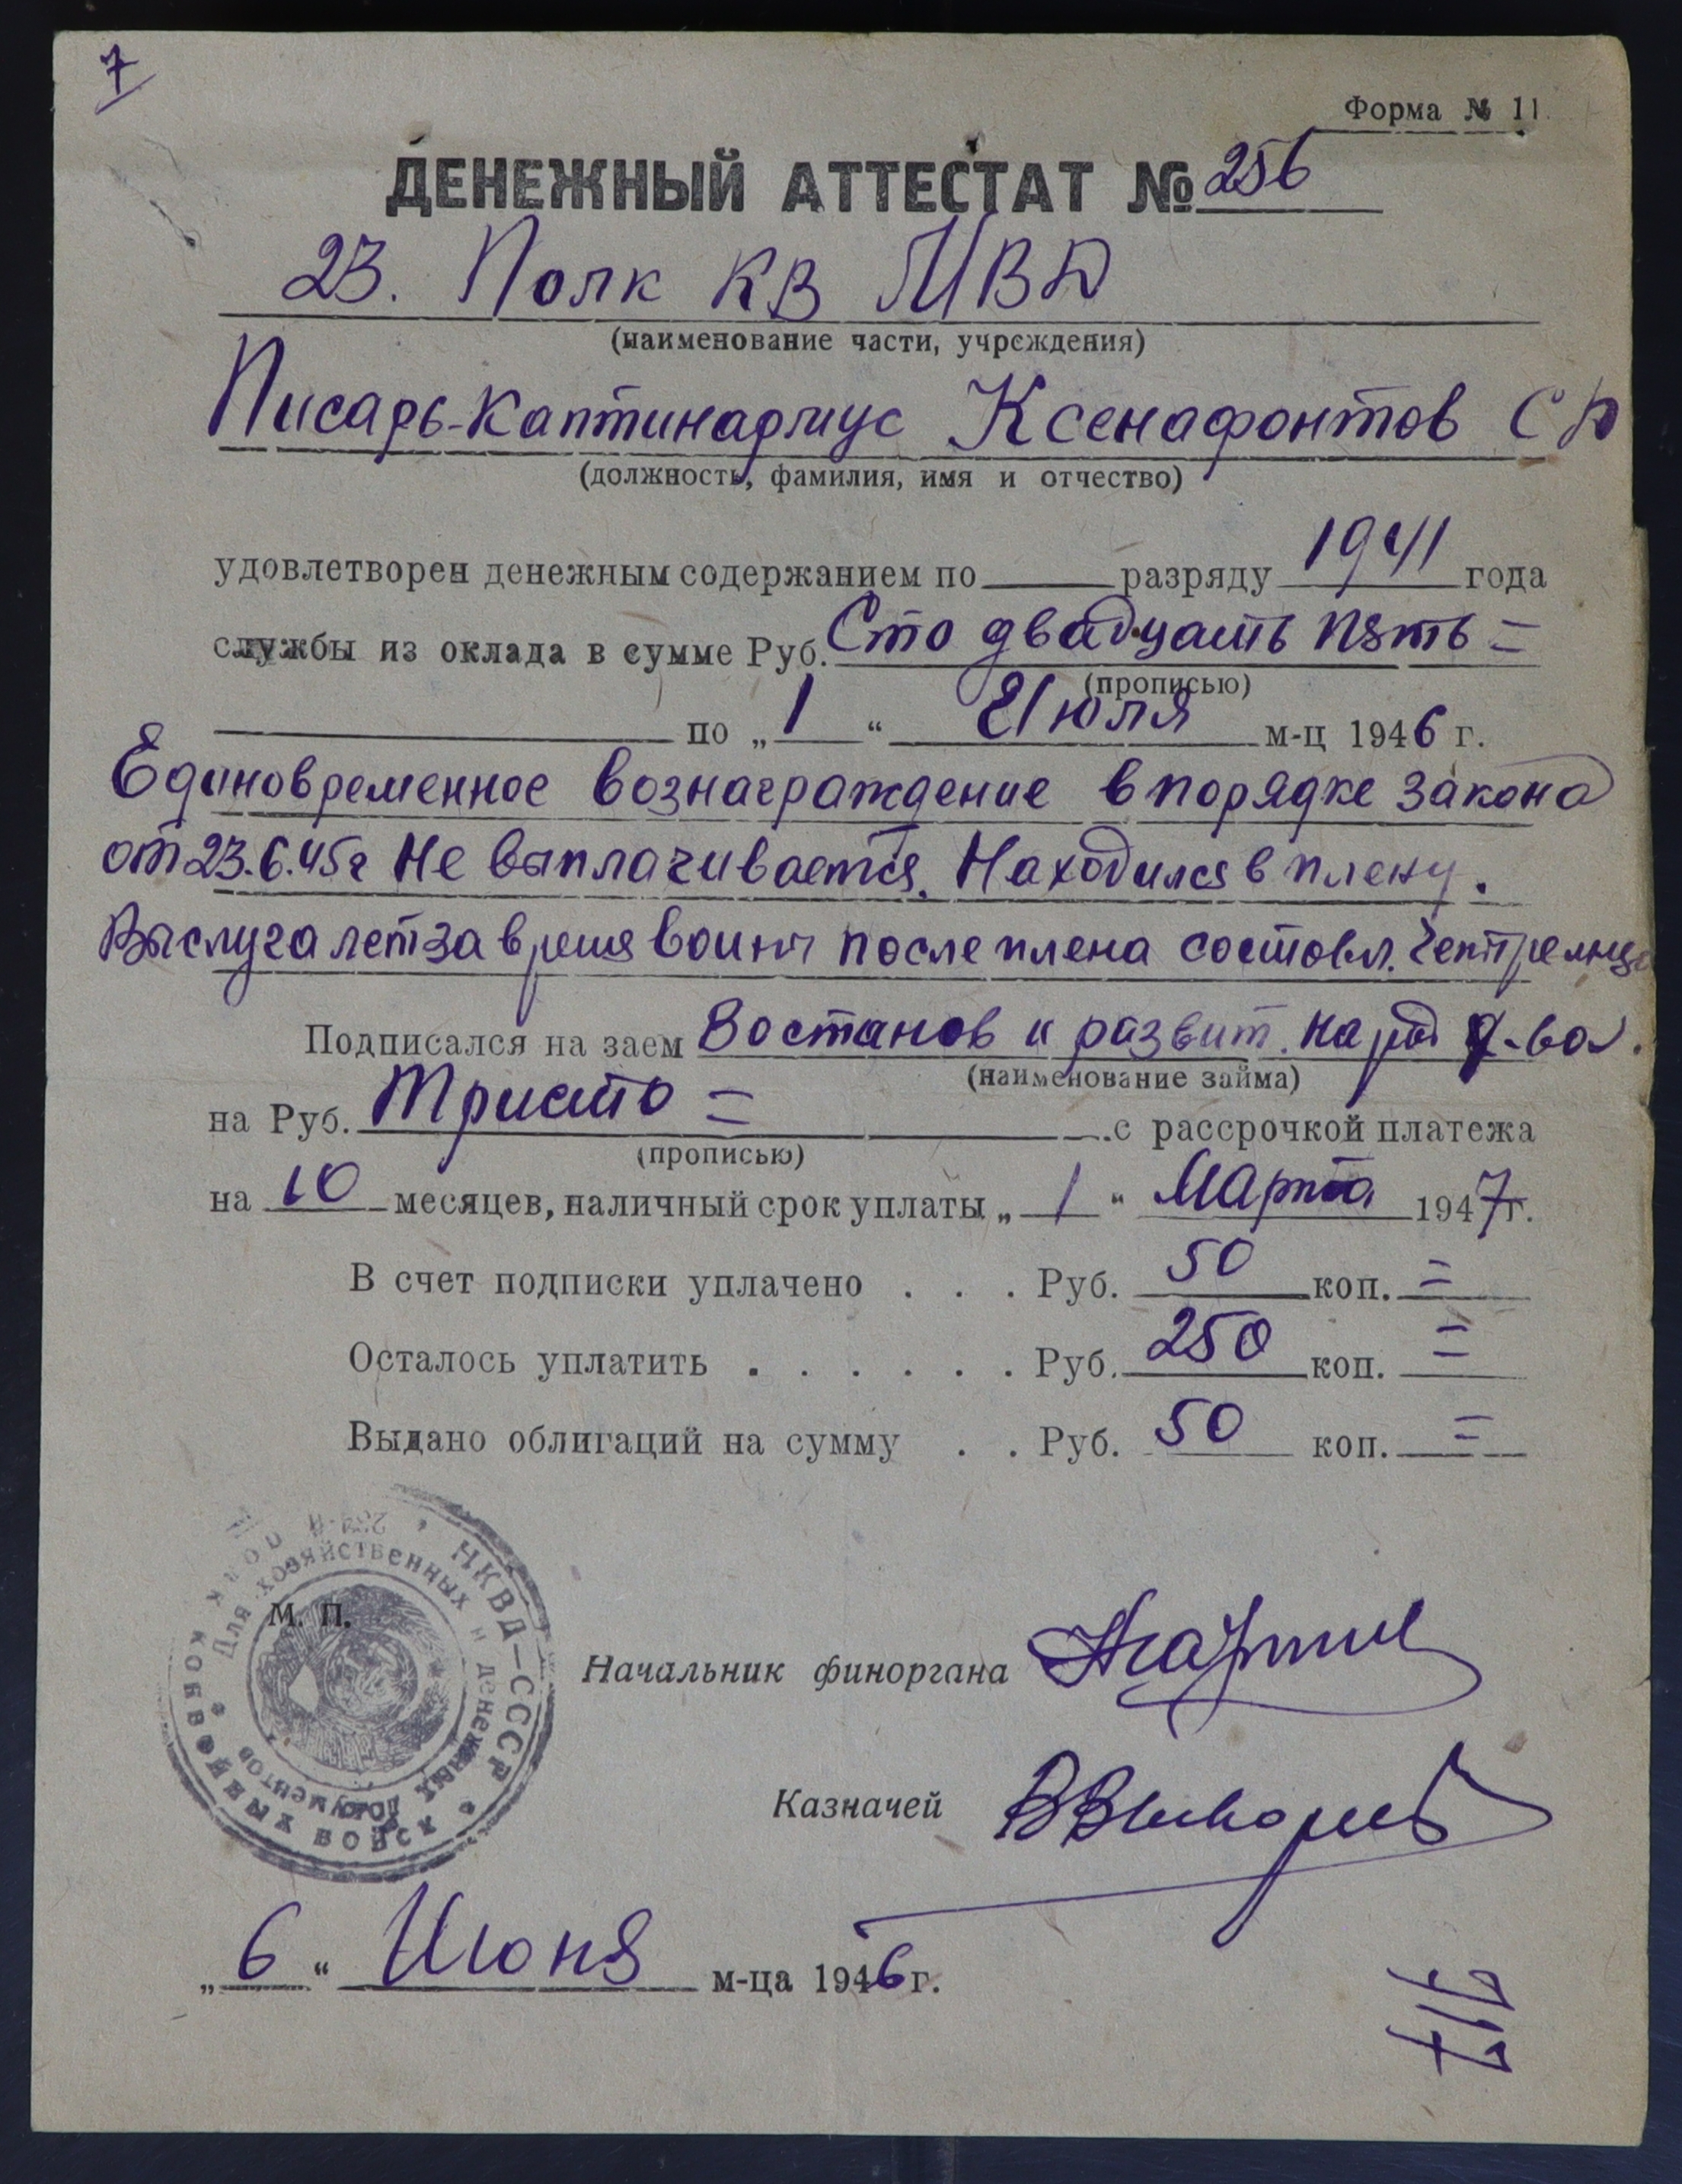 7
Форма № 11
ДЕНЕЖНЫЙ АТТЕСТАТ № 256
23. Полк КВ МВД
(наименование части, учреждения)
Писарь-Каптинармус Ксенафонтов С Д
(должность, фамилия, имя и отчество)
удовлетворен денежным содержанием по разряду 1941 года
службы из оклада в сумме Руб. Сто двадцать пять =
(прописью)
по „1“ Июля м-ц 1946 г.
Единовременное вознаграждение в порядке закона
от 23.6.45г Не выплачивается. Находился в плену.
Выслуга лет за время войны после плена состовл.
Подписался на заем Востанов и развит. народ х-ва.
(наименование займа)
на Руб. Тристо = с рассрочкой платежа
(прописью)
на 10 месяцев, наличный срок уплаты „1“ Марта 1947г.
В счет подписки уплачено . . . Руб. 50 коп. =
Осталось уплатить . . . . . . Руб. 250 коп. =
Выдано облигаций на сумму . . Руб. 50 коп. =
НКВД—СССР * полк конвойных войск
Для хозяйственных и денежных документов
М. П.
Начальник финоргана
Казначей
„6“ Июня м-ца 1946 г.